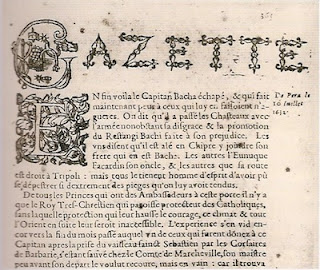 GAZETTE
EN fin voila le Capitan Bacha échapé, & qui fait
maintenant peur à ceux qui luy en faisoient n'a-
gueres. On dit qu'il a passé les Chasteaux avec
l'armée nonobstant la disgrace & la promotion
du Restangi Bachi faite à son prejudice. Les
uns disent qu'il est alé en Chipre y joindre son
frere qui en est Bacha. Les autres l'Emir
Facardin son oncle, & les autres que sa route
est droit à Tripoli: mais tous le tienent homme d'esprit d'avoir pû
se dépestrer si dextrement des pieges qu'on luy avoit tendus.
De tous les Princes qui ont des Ambassadeurs à cete porte il n'y a
que le Roy Tres-Chrestien qui paroisse protecteur des Catholiques,
sans laquelle protection qui leur hausse le courage, ce climat & tout
l'Orient en suite leur seroit inaccessible. L'experience s'en vid en-
cor vers la fin du mois passé auquel un de ceux qui furent dônés à ce
Capitan apres la prise du vaisseau sainct Sebastien par les Corsaires
de Barbarie, s'estant sauvé chez le Comte de Marcheville, son maistre
peu avant son départ le voulut recourre, mais en vain: car il trouva
De Pera le
10 Juillet
1632.